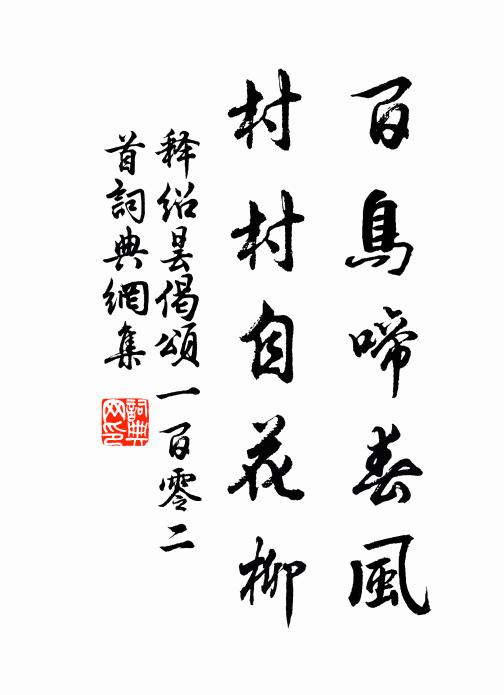 百鳥啼春風
村村自花柳
释绍昙偈頌一百零二
首詞典網集
詞典
网印